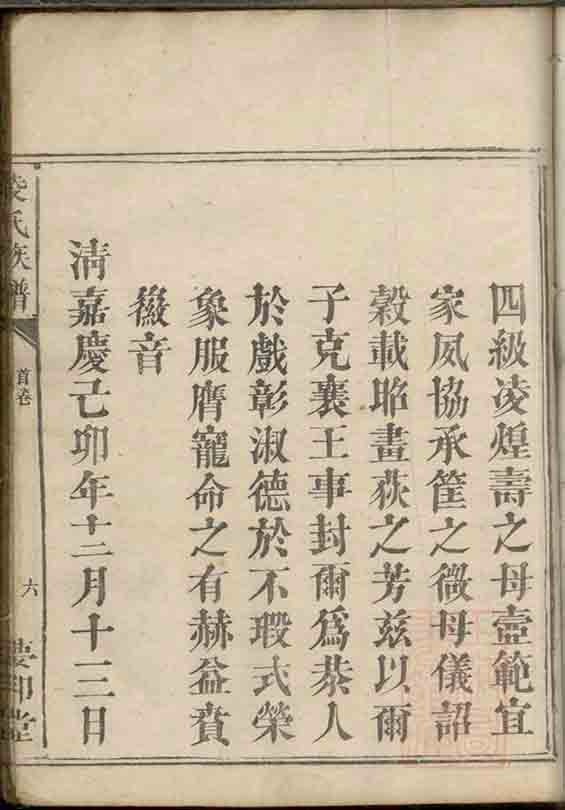 四級凌煌壽之母壼範宜
家夙協承筐之微母儀詔
穀載昭畫荻之芳兹以爾
子克襄王事封爾爲恭人
於戲彰淑德於不瑕式榮
象服膺寵命之有赫益賁
徽音
清嘉慶己卯年十二月十三日
凌氏族譜
首卷
六